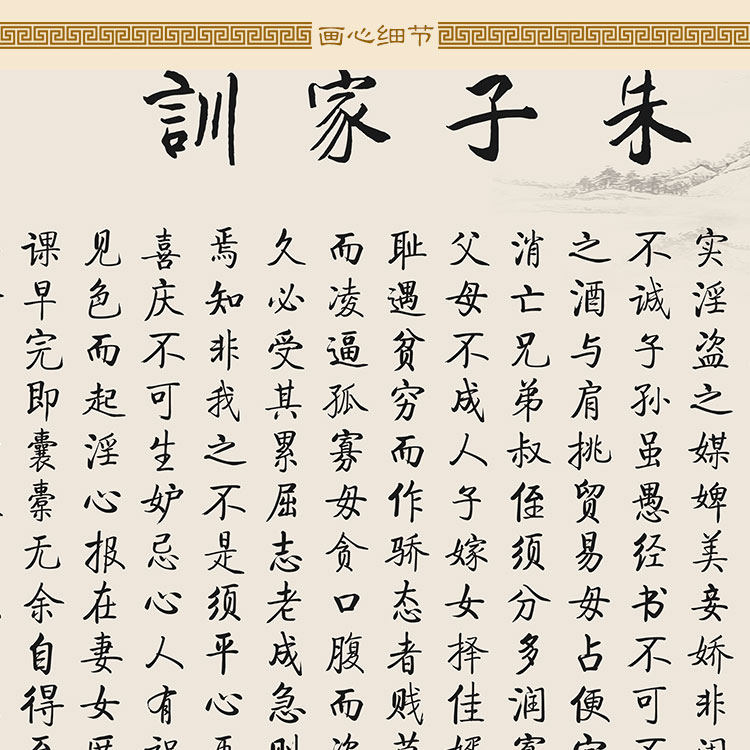 画心细节
朱子家訓
实淫盗之媒婢美妾娇非闺
不诚子孙虽愚经书不可不
之酒与肩挑贸易毋占便宜
消亡兄弟叔侄须分多润寡
父母不成人子嫁女择佳婿
耻遇贫穷而作骄态者贱
而凌逼孤寡毋贪口腹而恣
久必受其累屈志老成急则
焉知非我之不是须平心再
喜庆不可生妒忌心人有祸
见色而起淫心报在妻女匿
课早完即囊橐无余自得至